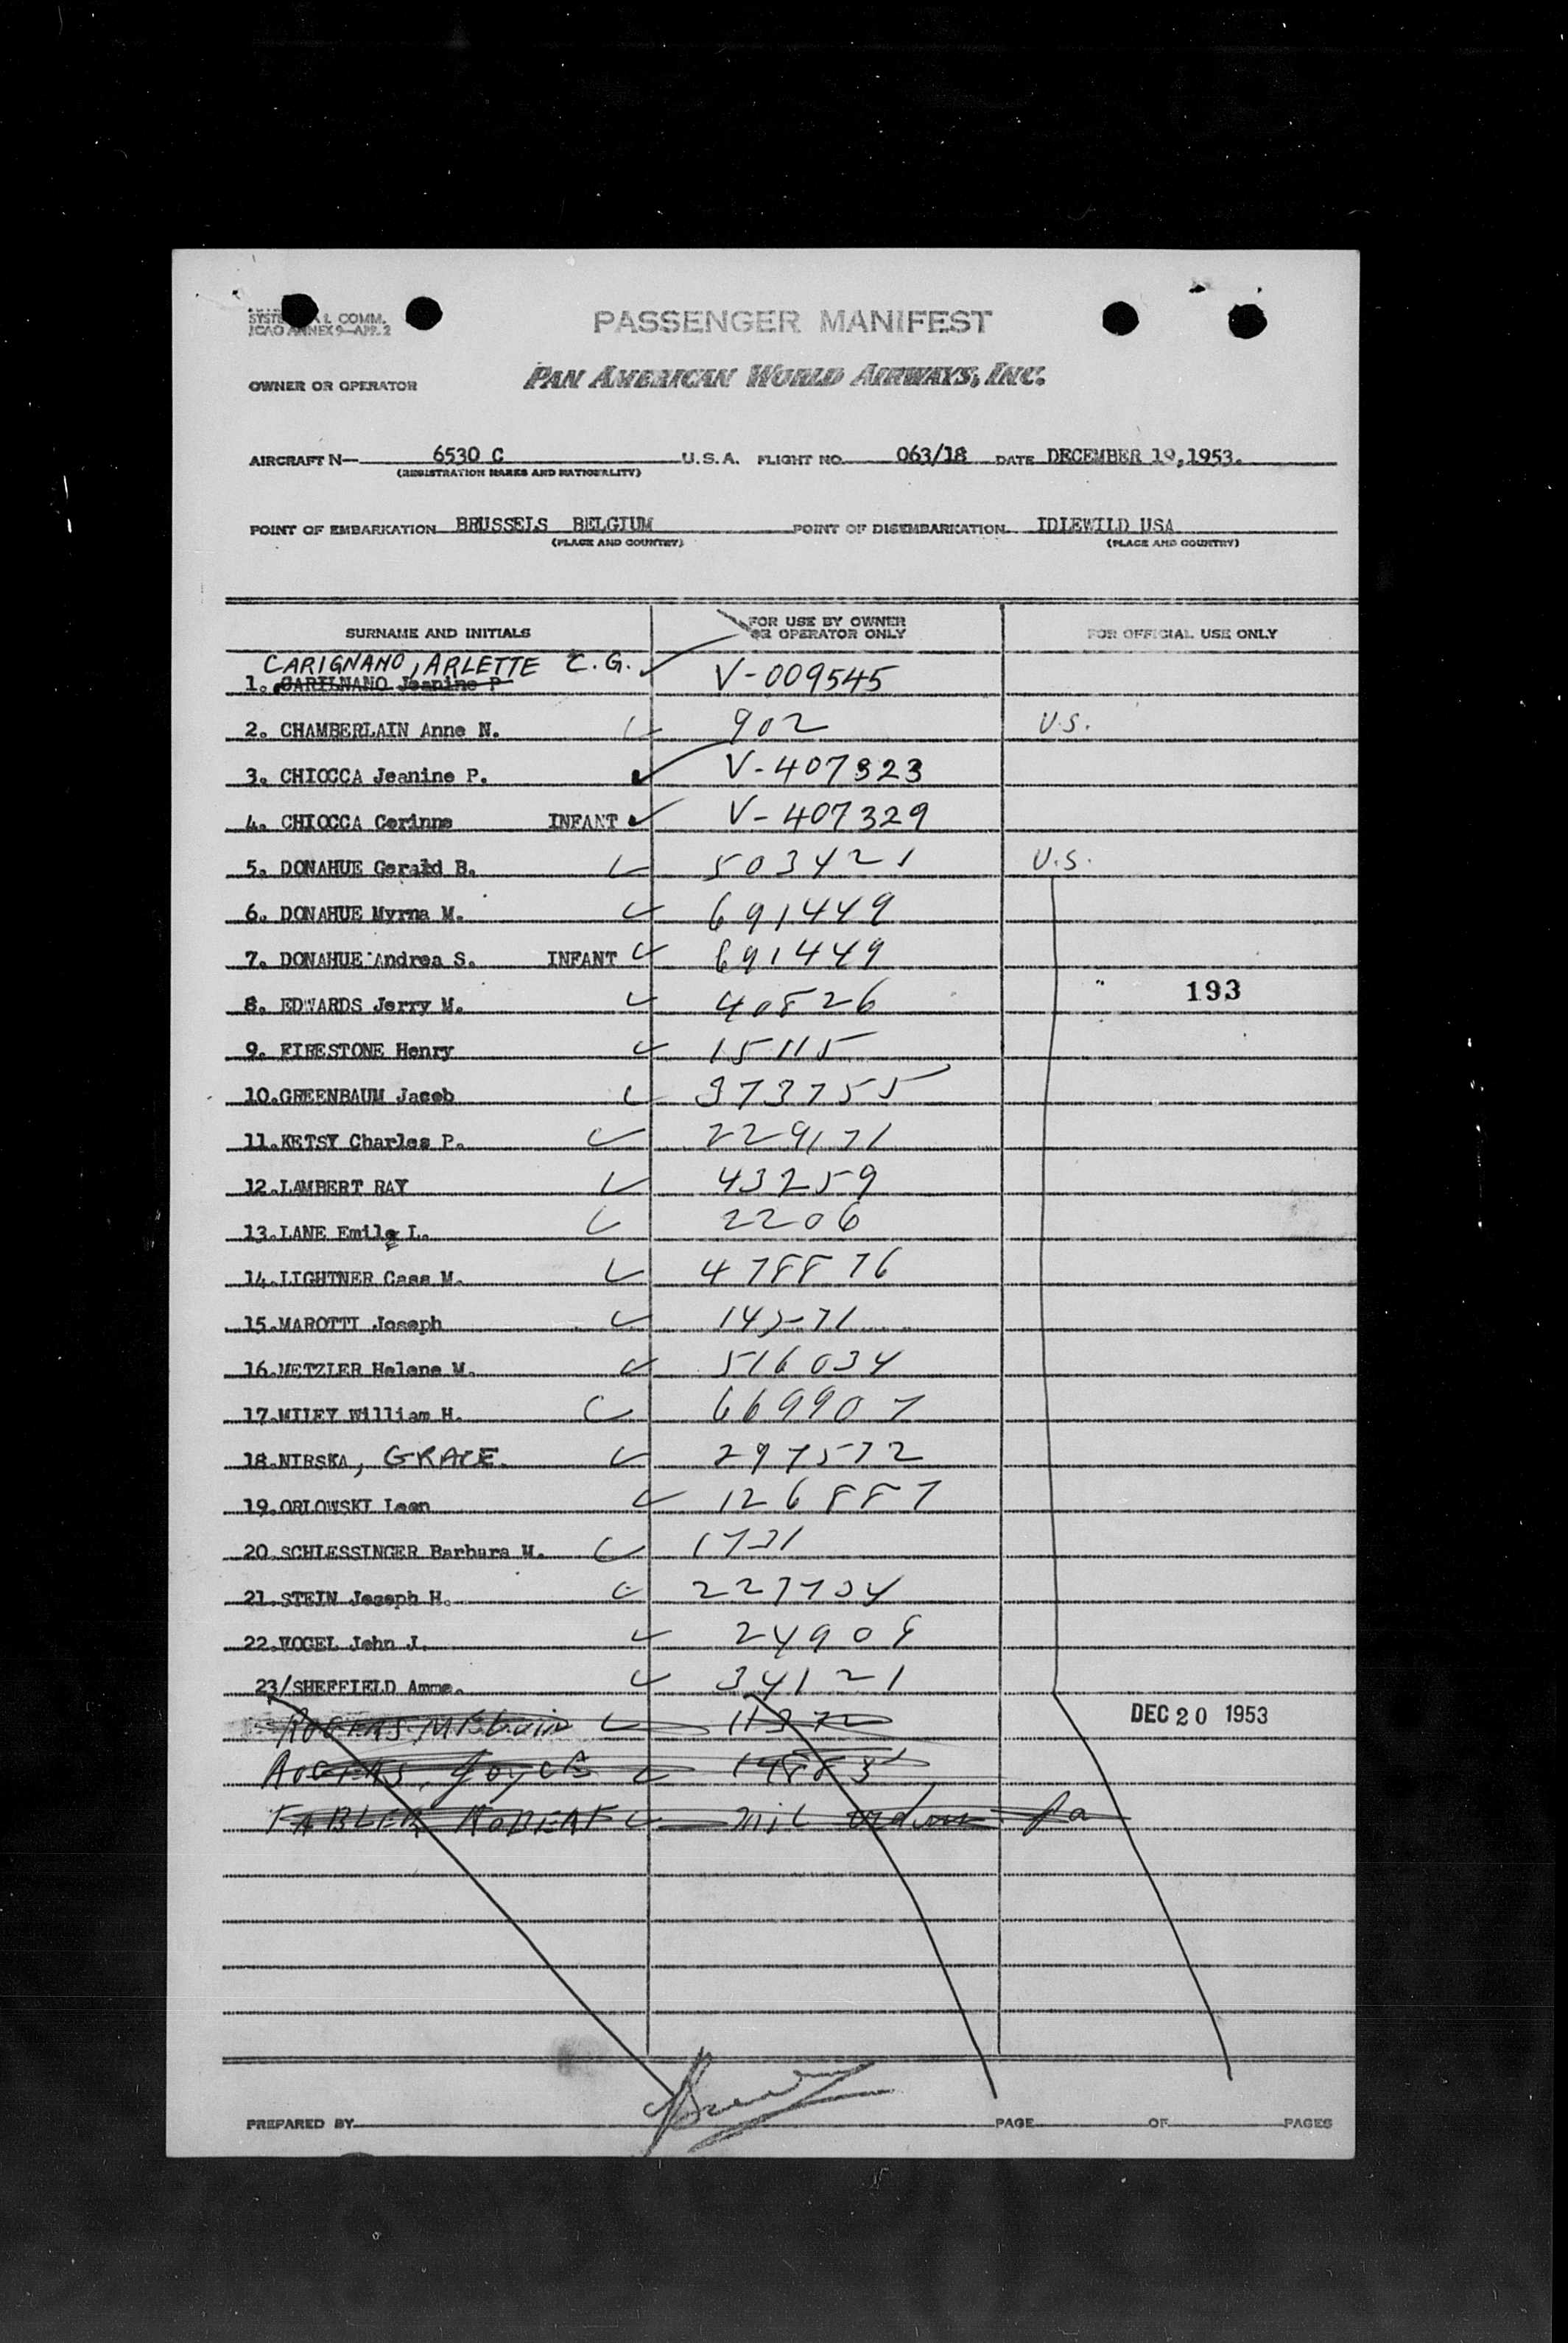 SYSTE & L COMM.
ICAO ANNEX 9—APP. 2
PASSENGER MANIFEST
OWNER OR OPERATOR PAN AMERICAN WORLD AIRWAYS, INC.
AIRCRAFT N— 6530 C U.S.A. FLIGHT NO. 063/18 DATE DECEMBER 19,1953.
(REGISTRATION MARKS AND NATIONALITY)
POINT OF EMBARKATION BRUSSELS BELGIUM POINT OF DISEMBARKATION IDLEWILD USA
(PLACE AND COUNTRY) (PLACE AND COUNTRY)
SURNAME AND INITIALS FOR USE BY OWNER OR OPERATOR ONLY FOR OFFICIAL USE ONLY
CARIGNANO, ARLETTE C.G.
1. CARILNANO Jeanine P V-009545
2. CHAMBERLAIN Anne N. 902 U.S.
3. CHIOCCA Jeanine P. V-407323
4. CHIOCCA Corinne INFANT V-407329
5. DONAHUE Gerald B. 503421 U.S.
6. DONAHUE Myrna M. 691449
7. DONAHUE Andrea S. INFANT 691449
193
8. EDWARDS Jerry M. 40826
9. FIRESTONE Henry 15115
10.GREENBAUM Jacob 373755
11.KETSY Charles P. 229171
12.LAMBERT RAY 43259
13.LANE Emile L. 2206
14.LIGHTNER Cass M. 478876
15.MAROTTI Joseph
16.METZLER Helene M. 516034
17.MILEY William H. 669907
18.NIRSKA, GRACE. 297572
19.ORLOWSKI Leon 126887
20 SCHLESSINGER Barbara M. 1731
21.STEIN Joseph H. 227734
22.VOGEL John J. 24908
23/SHEFFIELD Anne. 34121
ROGERS 11372 DEC 20 1953
ROGERS, Joyce 14883
FABLER ROBERT mil
PREPARED BY PAGE OF PAGES